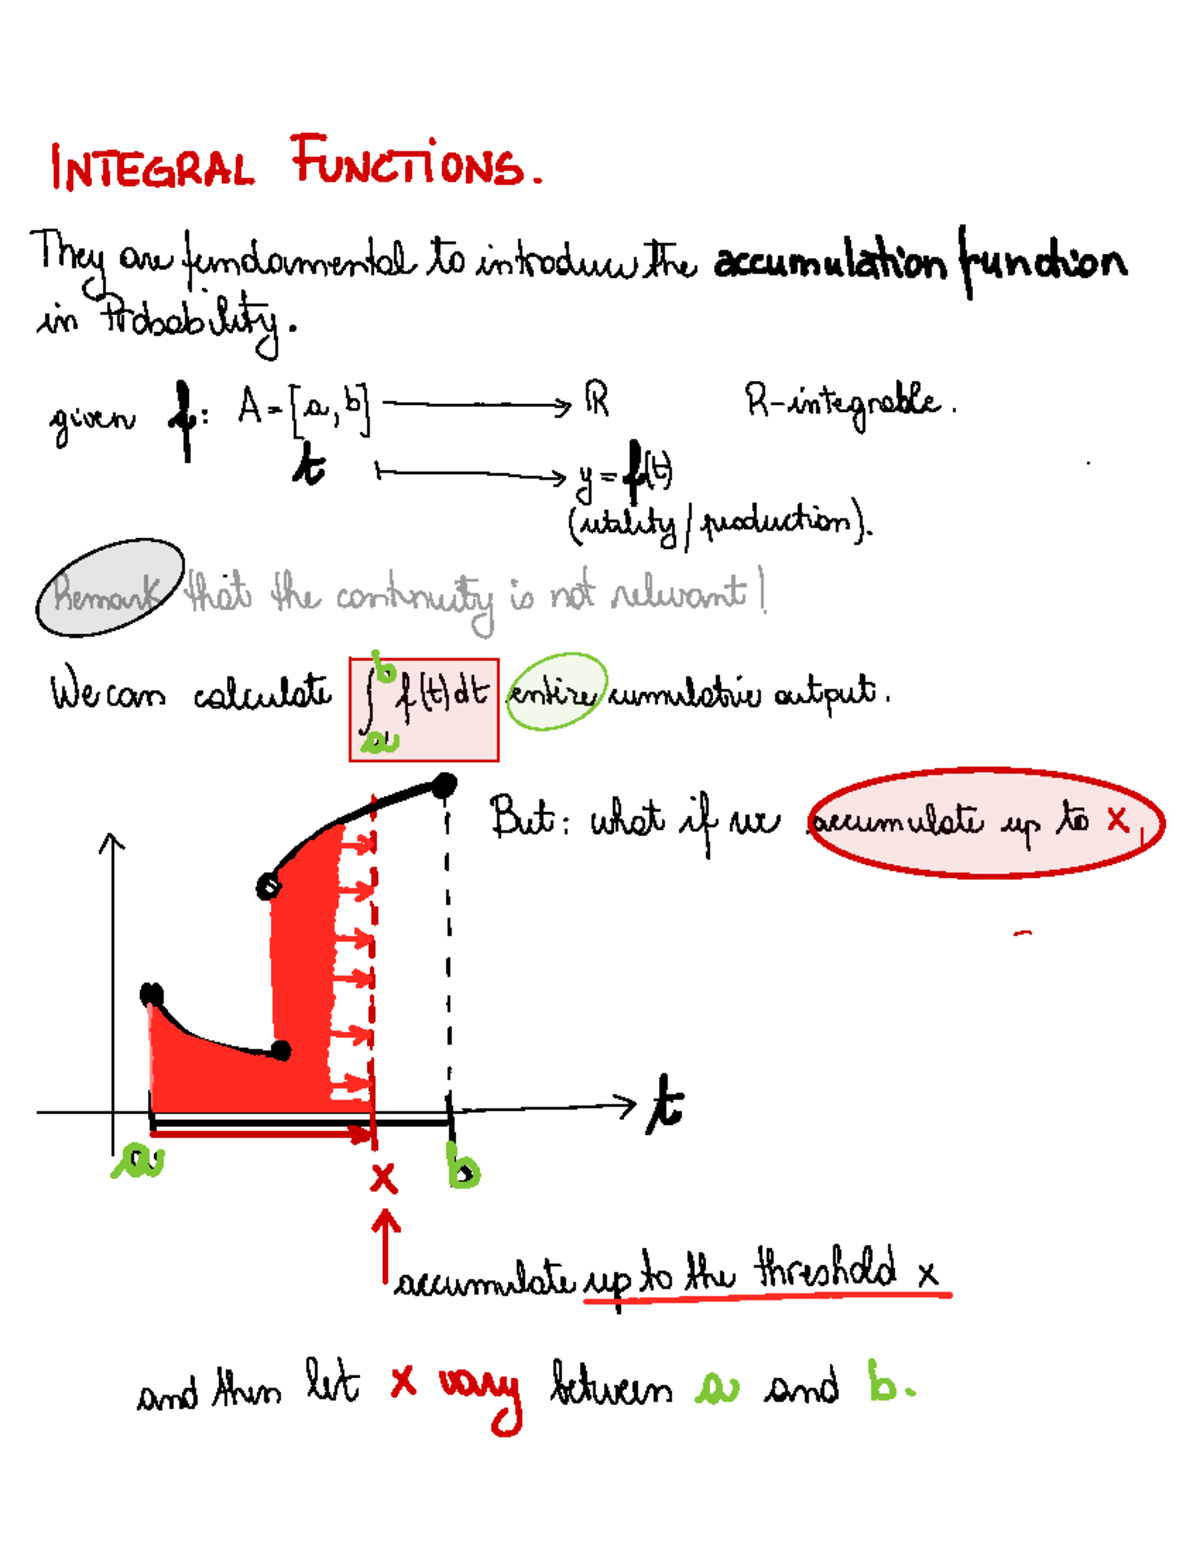 INTEGRAL FUNCTIONS.
They are fundamental to introduce the accumulation function
in Probability.
given f: A = [a, b] → R R-integrable.
t ↦ y = f(t)
(utility / production).
Remark that the continuity is not relevant!
We can calculate ∫_a^b f(t) dt entire cumulative output.
But: what if we accumulate up to x,
t
a
x
b
accumulate up to the threshold x
and then let x vary between a and b.